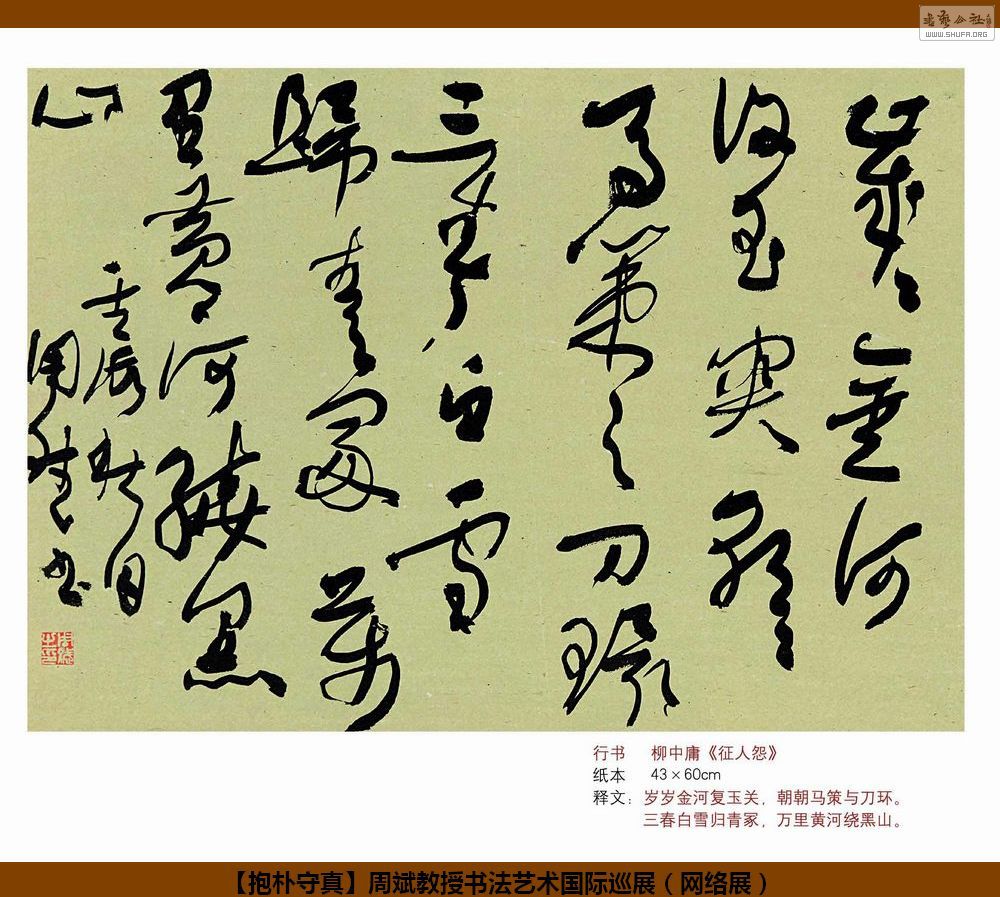 书艺公社
WWW.SHUFA.ORG
歲〻金河
復玉關朝〻
馬策与刀環
三春白雪
歸青冢萬
里黄河繞黑
山
壬辰 月
周斌书
周斌之印
行书 柳中庸《征人怨》
纸本 43×60cm
释文：岁岁金河复玉关，朝朝马策与刀环。
三春白雪归青冢，万里黄河绕黑山。
【抱朴守真】周斌教授书法艺术国际巡展（网络展）